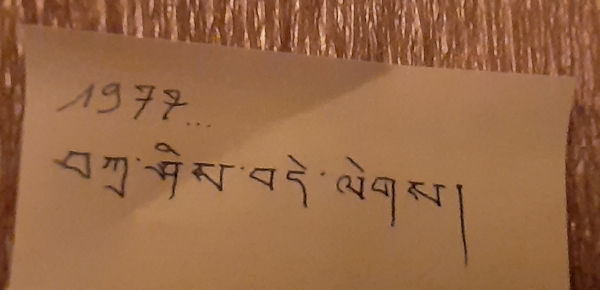 1977...
བཀྲ་ཤིས་བདེ་ལེགས།